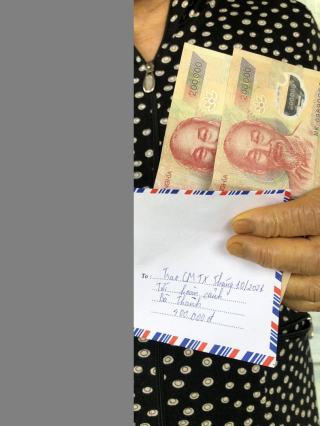 200.000
200.000
To: Trao CMTX Tháng 10/202
Tới hoàn cảnh
Bà Thành
400.000đ